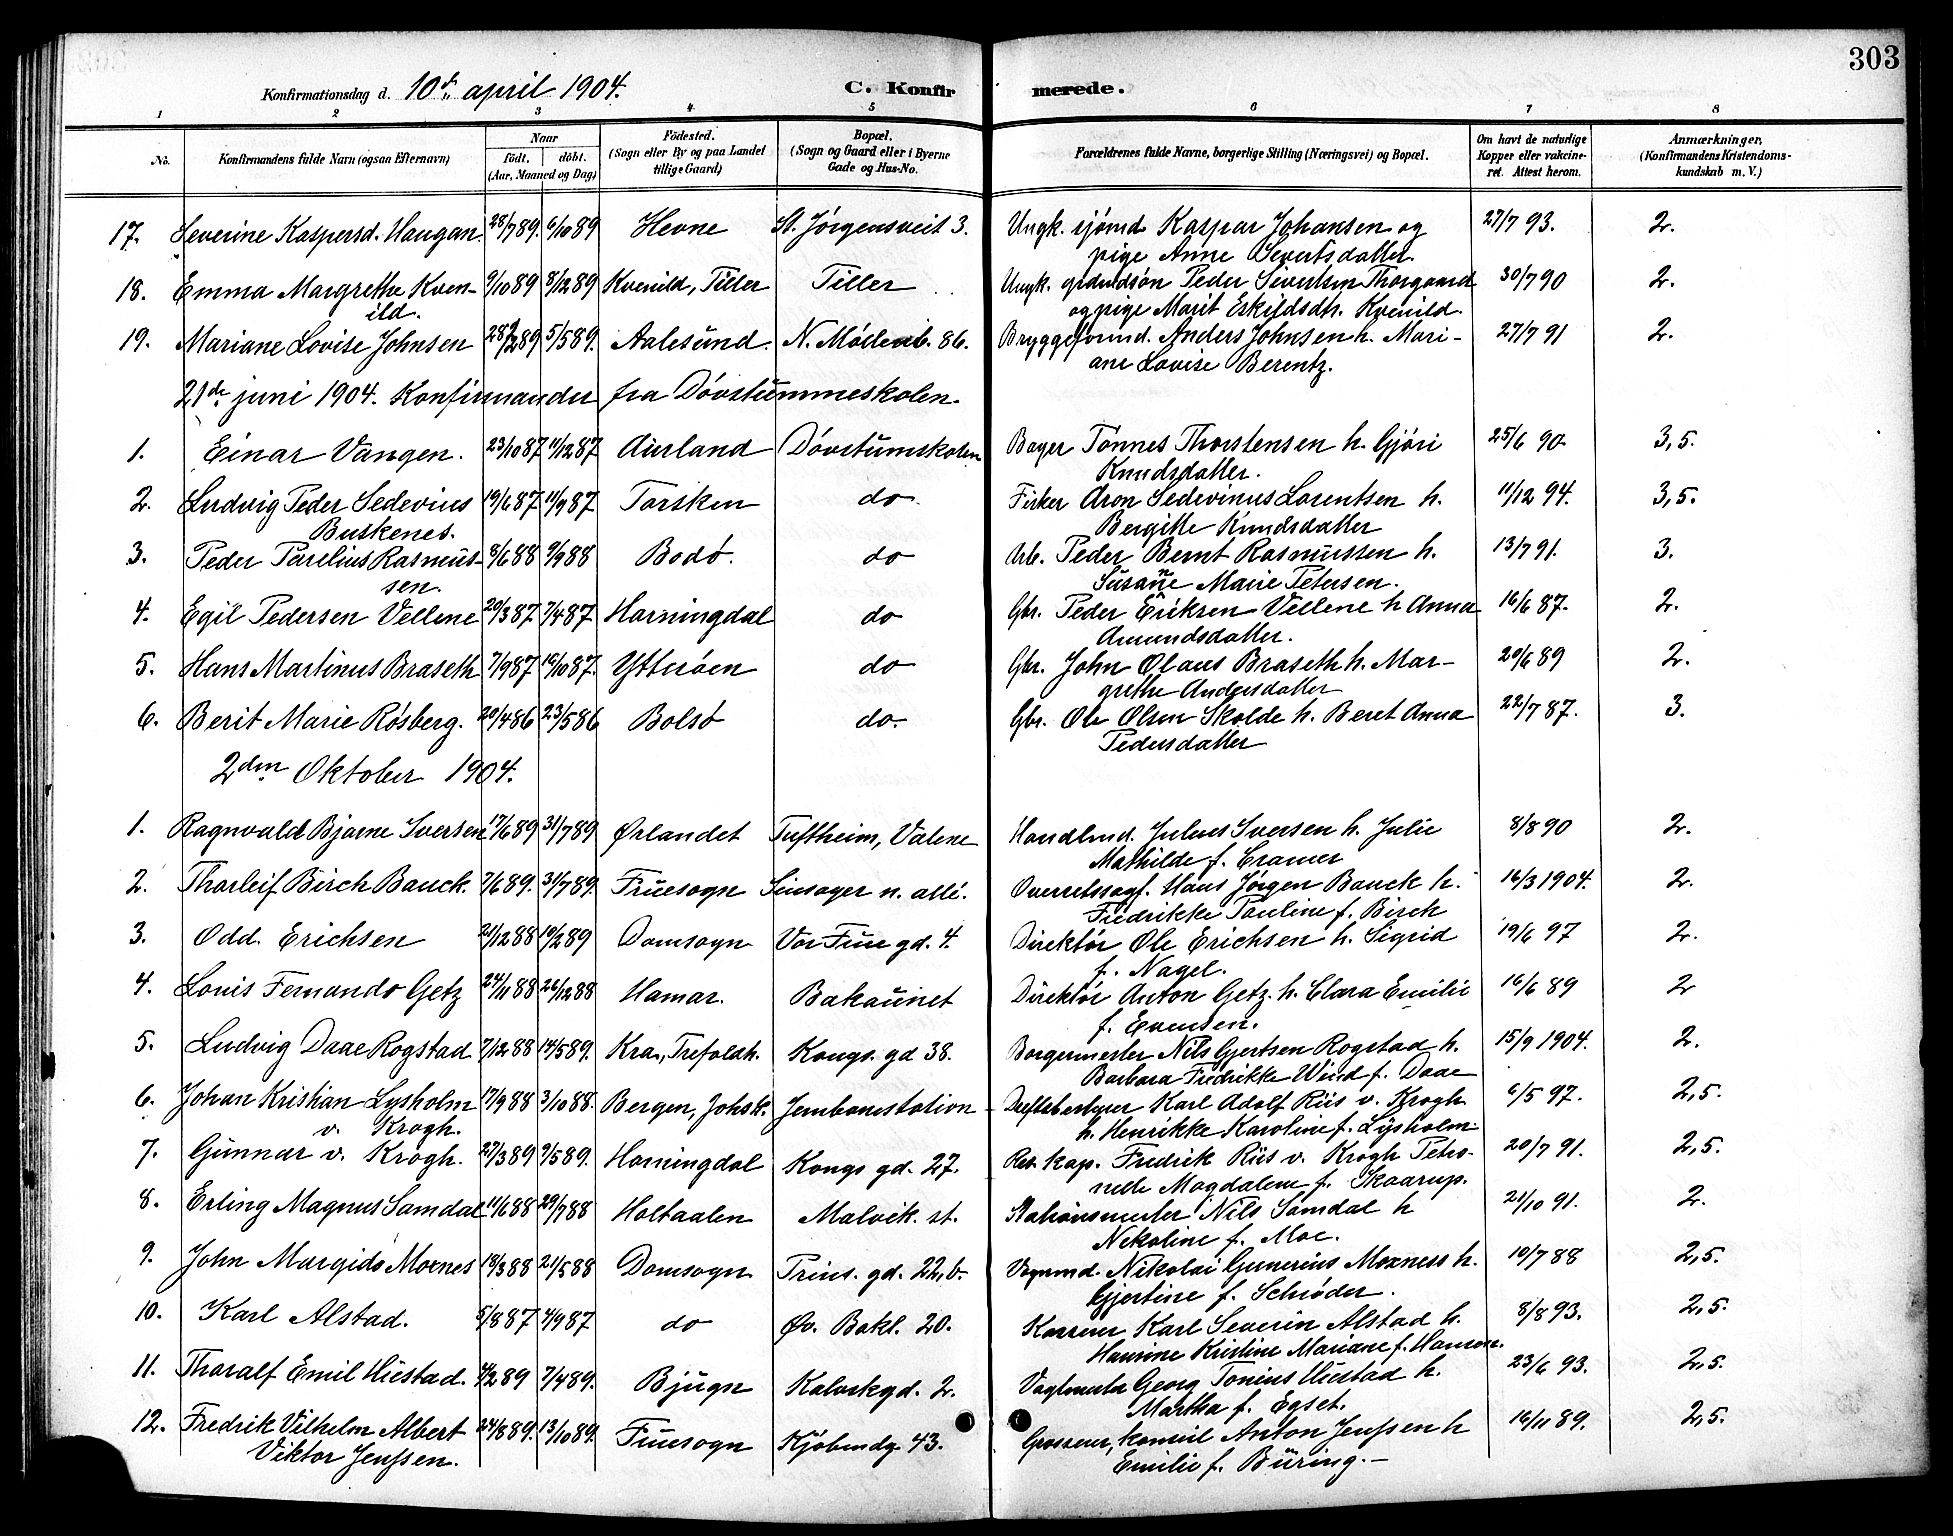 303
Konfirmationsdag d. 10de april 1904.
C. Konfirmerede.
1 2 3 4 5 6 7 8
No. Konfirmandens fulde Navn (ogsaa Efternavn) Naar født. døbt. (Aar, Maaned og Dag) Fødested. (Sogn eller By og paa Landet tillige Gaard) Bopæl. (Sogn og Gaard eller i Byerne Gade og Hus-No. Forældrenes fulde Navne, borgerlige Stilling (Næringsvei) og Bopæl. Om havt de naturlige Kopper eller vakcineret. Attest herom. Anmærkninger, (Konfirmandens Kristendomskundskab m. V.)
17. Severine Kaspersd. Haugan. 28/7 89. 6/10 89 Hevne St. Jørgensveit 3. Ungk. sjømd. Kaspar Johansen og 27/7 93. 2.
pige Anne Sivertsdatter.
18. Emma Margrethe Kven- 9/10 89 8/12 89 Kvenild, Tiller Tiller Ungk. grdmdsøn Peder Sivertsen Thorgaard 30/7 90 2.
ild. og pige Marit Eskildsdtr. Kvenild.
19. Mariane Lovise Johnsen 28/2 89 5/5 89. Aalesund. N. Møllenb. 86. Bryggeformd. Anders Johnsen h. Mari- 27/7 91 2.
ane Lovise Berentz.
21de juni 1904. Konfirmander fra Døvstummeskolen.
1. Einar Vangen. 23/10 87 11/12 87 Aurland Døvstumskolen Bager Tønnes Thorstensen h. Gjøri 25/6 90. 3,5.
Knudsdatter.
2. Ludvig Peder Sedevius 19/6 87 11/9 87 Torsken do Fisker Aron Sedevinus Lorentsen h. 11/12 94. 3,5.
Buskenes. Bergitte Knudsdatter
3. Peder Parelius Rasmus- 8/6 88 9/9 88 Bodø. do Arb. Peder Bernt Rasmussen h. 13/7 91. 3.
sen. Susanne Marie Petersen.
4. Egil Pedersen Vellene 20/3 87 7/4 87 Horningdal do Gbr. Peder Eriksen Vellene h Anna 16/6 87. 2.
Amundsdatter.
5. Hans Martinus Braseth 7/9 87 16/10 87. Ytterøen do Gbr. John Olaus Braseth h. Mar- 20/6 89 2.
grethe Andersdatter
6. Berit Marie Røsberg. 20/4 86 23/5 86 Bolsø do. Gbr. Ole Olsen Skolde h. Beret Anna 22/7 87. 3.
Pedersdatter
2den Oktober 1904.
1. Ragnvald Bjarne Iversen 17/6 89 31/7 89 Ørlandet Tuftheim, Valene Handlmd. Julius Iversen h. Julie 8/8 90 2.
Mathilde f. Cramer
2. Tharleif Birch Bauck. 7/6 89. 31/7 89. Fruesogn n. allé. Overretssagf. Hans Jørgen Bauck h. 16/3 1904. 2.
Fredrikke Pauline f. Birch
3. Odd. Erichsen 21/12 88 10/2 89 Domsogn Vor Frue gd. 4. Direktør Ole Erichsen h. Sigrid 19/6 97 2.
f. Nagel.
4. Louis Fernando Getz 24/11 88 26/12 88 Hamar. Bakaunet Direktør Anton Getz. h. Clara Emilie 16/6 89 2
f. Evensen.
5. Ludvig Daae Rogstad 7/12 88 14/5 89. Kra., Trefoldh. Kongs. gd 38. Borgermester Nils Gjertsen Rogstad h. 15/9 1904. 2.
Barbara Fredrikke Wind f. Daae
6. Johan Kristian Lysholm 17/9 88 3/10 88. Bergen, Johsk. Jernbanestation Driftsbestyrer Karl Adolf Riis v. Krogh 6/5 97. 2,5.
v. Krogh. h. Henrikke Karoline f. Lysholm
7. Gunnar v. Krogh. 27/3 89 9/5 89. Horningdal Kongs gd. 27. Rit. kap. Fredrik Riis v. Krogh Petro- 20/7 91. 2,5.
nelle Magdalene f. Skaarup.
8. Erling Magnus Samdal 11/6 88 29/7 88 Holtaalen Malvik. st. Stationsmester Nils Samdal h 21/10 91. 2.
Nikoline f. Moe.
9. John Margido Moxnes 18/3 88 21/5 88 Domsogn Prins. gd. 22,b. Vognmd. Nikolai Gunerius Moxness h. 10/7 88 2,5.
Gjertine f. Schrøder.
10. Karl Alstad. 5/8 87 4/9 87 do Øv. Bakl. 20. Kasserer Karl Severin Alstad h. 8/8 93. 2,5.
Hansine Kristine Mariane f. Hansen.
11. Tharalf Emil Hustad. 4/2 89 7/4 89. Bjugn Kalvskgd. 2. Vagtmester Georg Tonius Hustad h. 23/6 93. 2,5.
Martha f. Egset.
12. Fredrik Vilhelm Albert 24/8 89. 13/10 89. Fruesogn Kjøbmdg 43. Grosserer, konsul Anton Jenssen h 16/11 89. 2,5.
Viktor Jenssen. Emilie f. Büring.